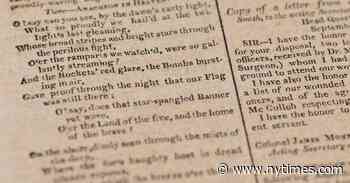 Tune—ANACREON IN
O! say can you see, by the dawn's early light,
What so proudly we hail'd at the twi-
light's last gleaming,
Whose broad stripes and bright stars through
the perilous fight,
O'er the ramparts we watch'd, were so gal-
lantly streaming?
And the Rockets' red glare, the Bombs burst-
ing in air,
Gave proof through the night that our Flag
was still there;
O! say, does that star-spangled Banner
yet wave,
O'er the Land of the free, and the home
of the brave!
On the shore, dimly seen through the mists of
the deep,
Where the foe's haughty host in dread
Copy of a letter from
Head Quar
Septem
SIR—I have the honor
for your disposal, two
officers, received by Dr. M
Surgeon,) whom I had
ground to attend our wo
I have also the honor
a list of our wounded
ours, and of the agree
Mc Culloh respecting
I have the honor to
ent servant.
Colonel JAMES MOS
Acting Secretary of
www.nytimes.com